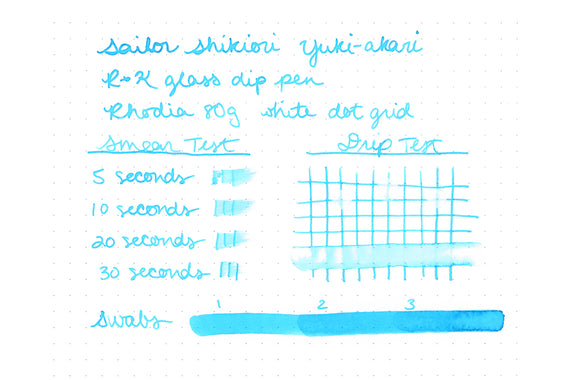 Sailor Shikiori Yuki-akari
R&K glass dip pen
Rhodia 80g white dot grid
Smear Test
Drip Test
5 seconds
10 seconds
20 seconds
30 seconds
1 2 3
Swabs